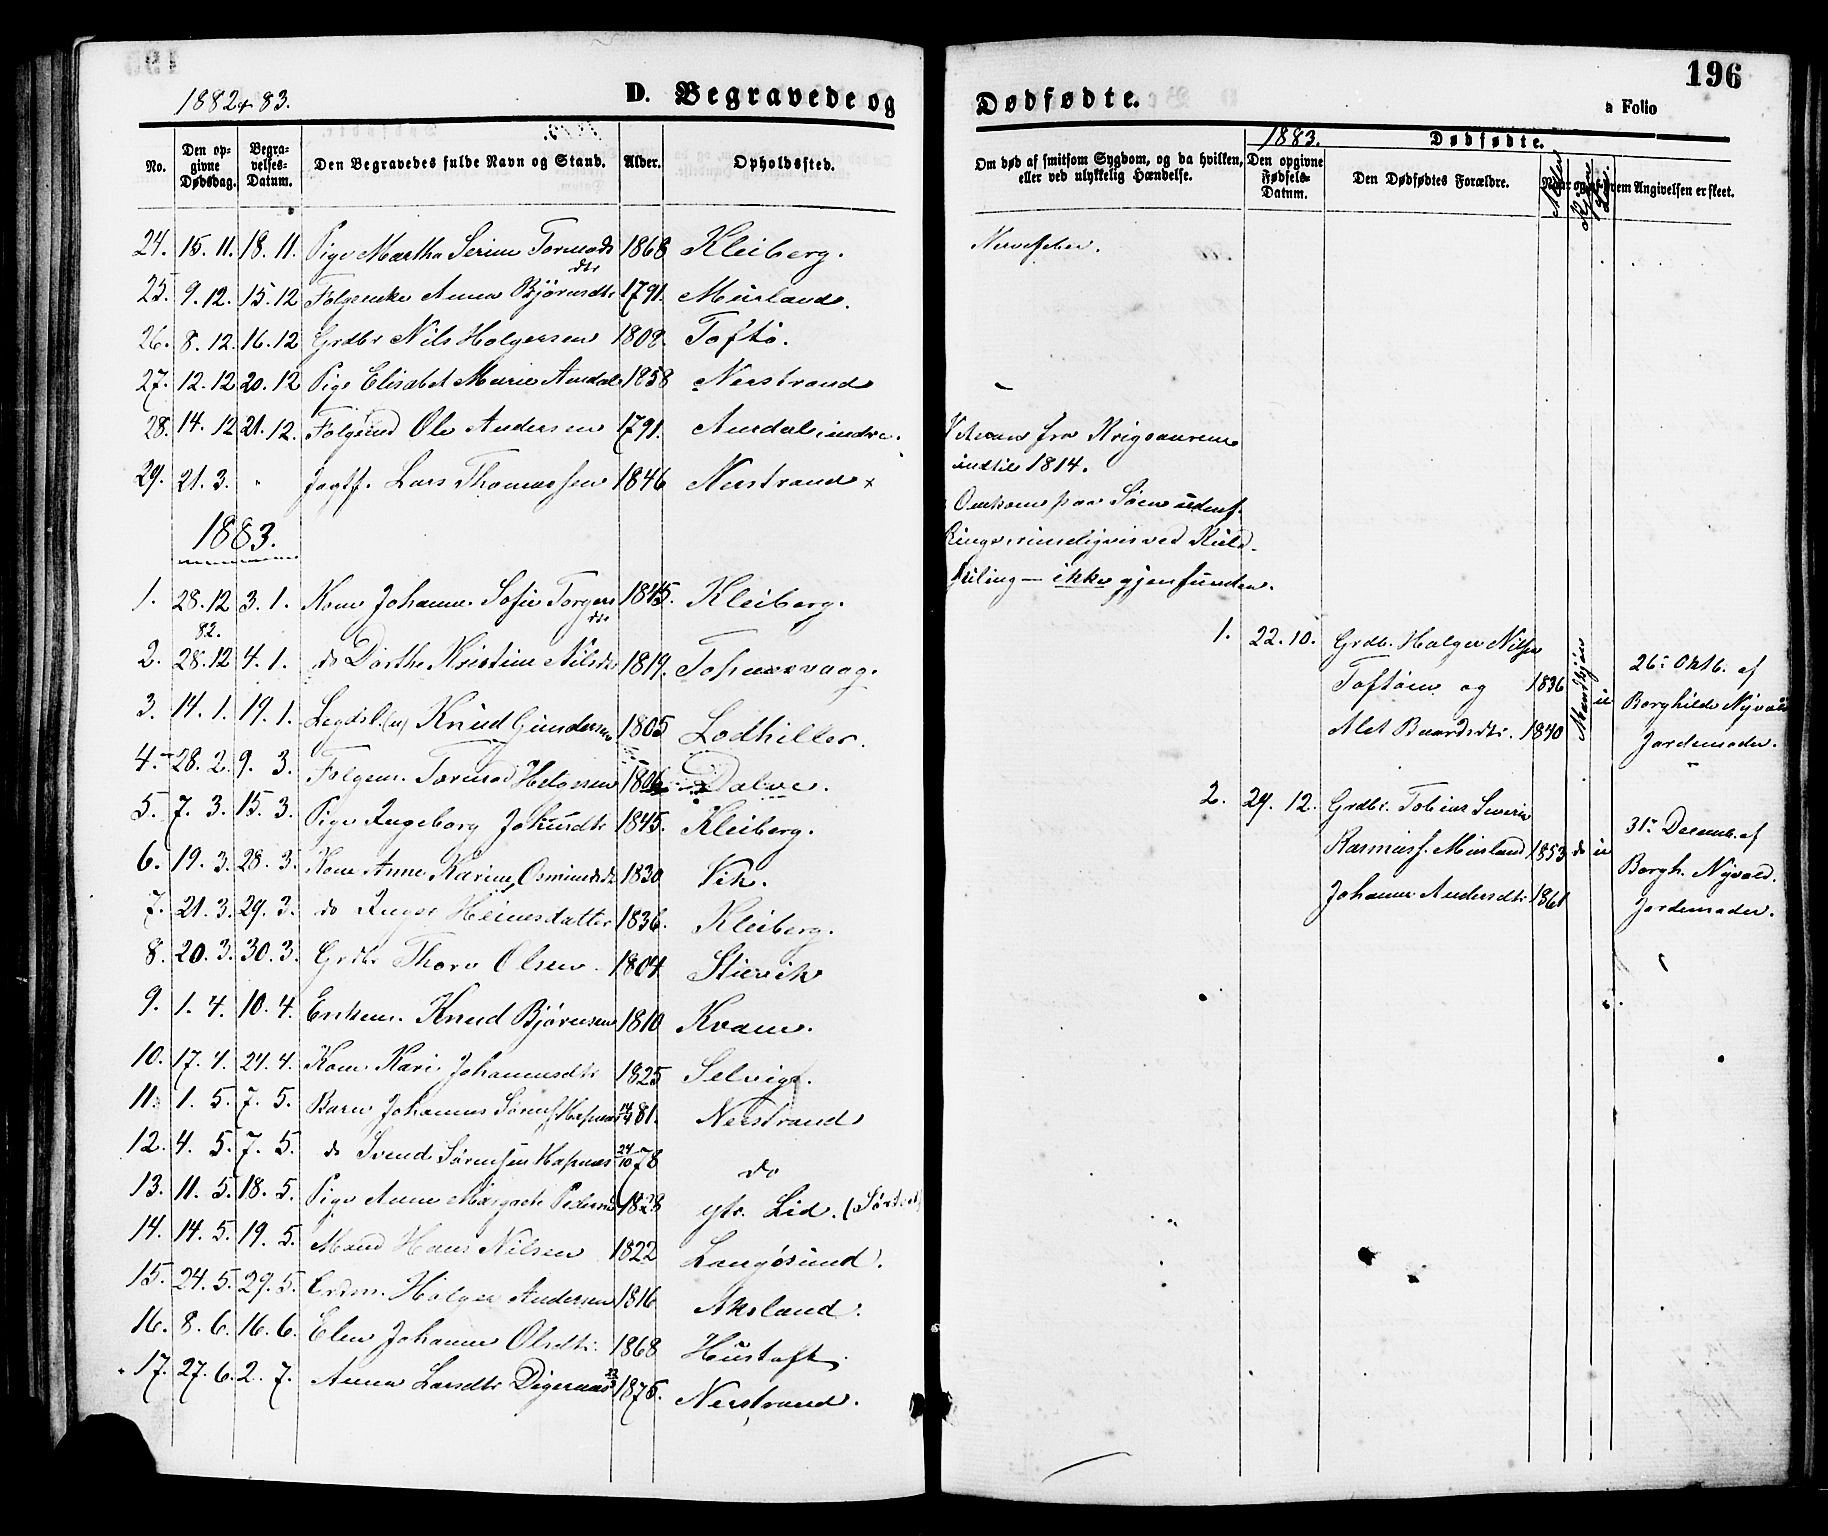 196
1882 & 83.
D. Begravede og Dødfødte.
a Folio
1883. Dødfødte.
No.
Den opgivne Dødsdag.
Begravelses-Datum.
Den Begravedes fulde Navn og Stand.
Alder.
Opholdssted.
Om død af smitsom Sygdom, og da hvilken, eller ved ulykkelig Hændelse.
Den opgivne Fødsels-Datum.
Den Dødfødtes Forældre.
Alder
Kjøn
Naar og af hvem Angivelsen er skeet.
24. 15. 11. 18. 11. Pige Martha Serine Tormods dtr 1868 Kleiberg. Nervefeber.
25. 9. 12. 15. 12 Folgeenke Anna Bjørnsdtr 1791. Meeland.
26. 8. 12. 16. 12 Grdbr Nils Holgersen 1808. Toftø.
27. 12. 12 20. 12 Pige Elisabet Marie Amdal 1858 Nerstrand
28. 14. 12 21. 12. Folgemd Ole Andersen 1791. Amdal indre. Veteran fra Krigsaarene indtil 1814.
29. 21. 3. " Jagtf. Lars Thomassen 1846 Nerstrand x Omkom paa Søen udenf.
Rings rimeligvis ved Kuld-
seiling — ikke gjenfunden.
1883.
1. 28. 12 82. 3. 1. Kone Johanne Sofie Torgers dtr 1845. Kleiberg.
2. 28. 12 4. 1. do Dorthe Kristine Nilsdtr 1819.
3. 14. 1. 19. 1. Legdsl. (u) Knud Gundersen 1805
4. 28. 2. 9. 3. Folgem. Tormod 1806 Dalve.
5. 7. 3. 15. 3. Pige Ingeborg 1845. Kleiberg.
6. 19. 3. 28. 3. Kone Anne Karine Osmundsdtr 1830 Vik.
7. 21. 3. 29. 3. do Inger Heinesdatter 1836. Kleiberg.
8. 20. 3. 30. 3. Grdbr Thore Olsen 1804 Stuvik
9. 1. 4. 10. 4. Enkem. Knud Bjørnsen 1810 Kvame.
10. 17. 4. 24. 4. Kone Kari Johannesdtr 1825 Selvig.
11. 1. 5. 7. 5. Barn Johannes Sørensf. Hapnes 81. Nerstrand
12. 4. 5. 7. 5. do Svend Sørensen Hapnes 24/10 78 do
13. 11. 5. 18. 5. Pige Anne Margrete Pedersdtr 1828 ytr. Lid.
14. 14. 5. 19. 5. Mand Hans Nilsen 1822 Langøsund.
15. 24. 5. 29. 5. Holger Andersen 1816 Aksland.
16. 8. 6. 16. 6. Elen Johanne Olsdtr. 1868 Hustoft
17. 27. 6. 2. 7. Anna Larsdtr Digernæs 1875. Nerstrand.
1. 22. 10. Grdbr. Holger Nilsen
Toftøen og 1836
Alet Baardsdtr. 1840
Mandkjøn
u
26. Oktb. af
Borghilde Nyvold
Jordemoder.
2. 29. 12. Grdbr. Tobias Severin
Rasmusf. Meeland 1853 do u
Johanne Andersdtr 1861
31. Decemb. af
Borgh. Nyvold.
Jordemoder.